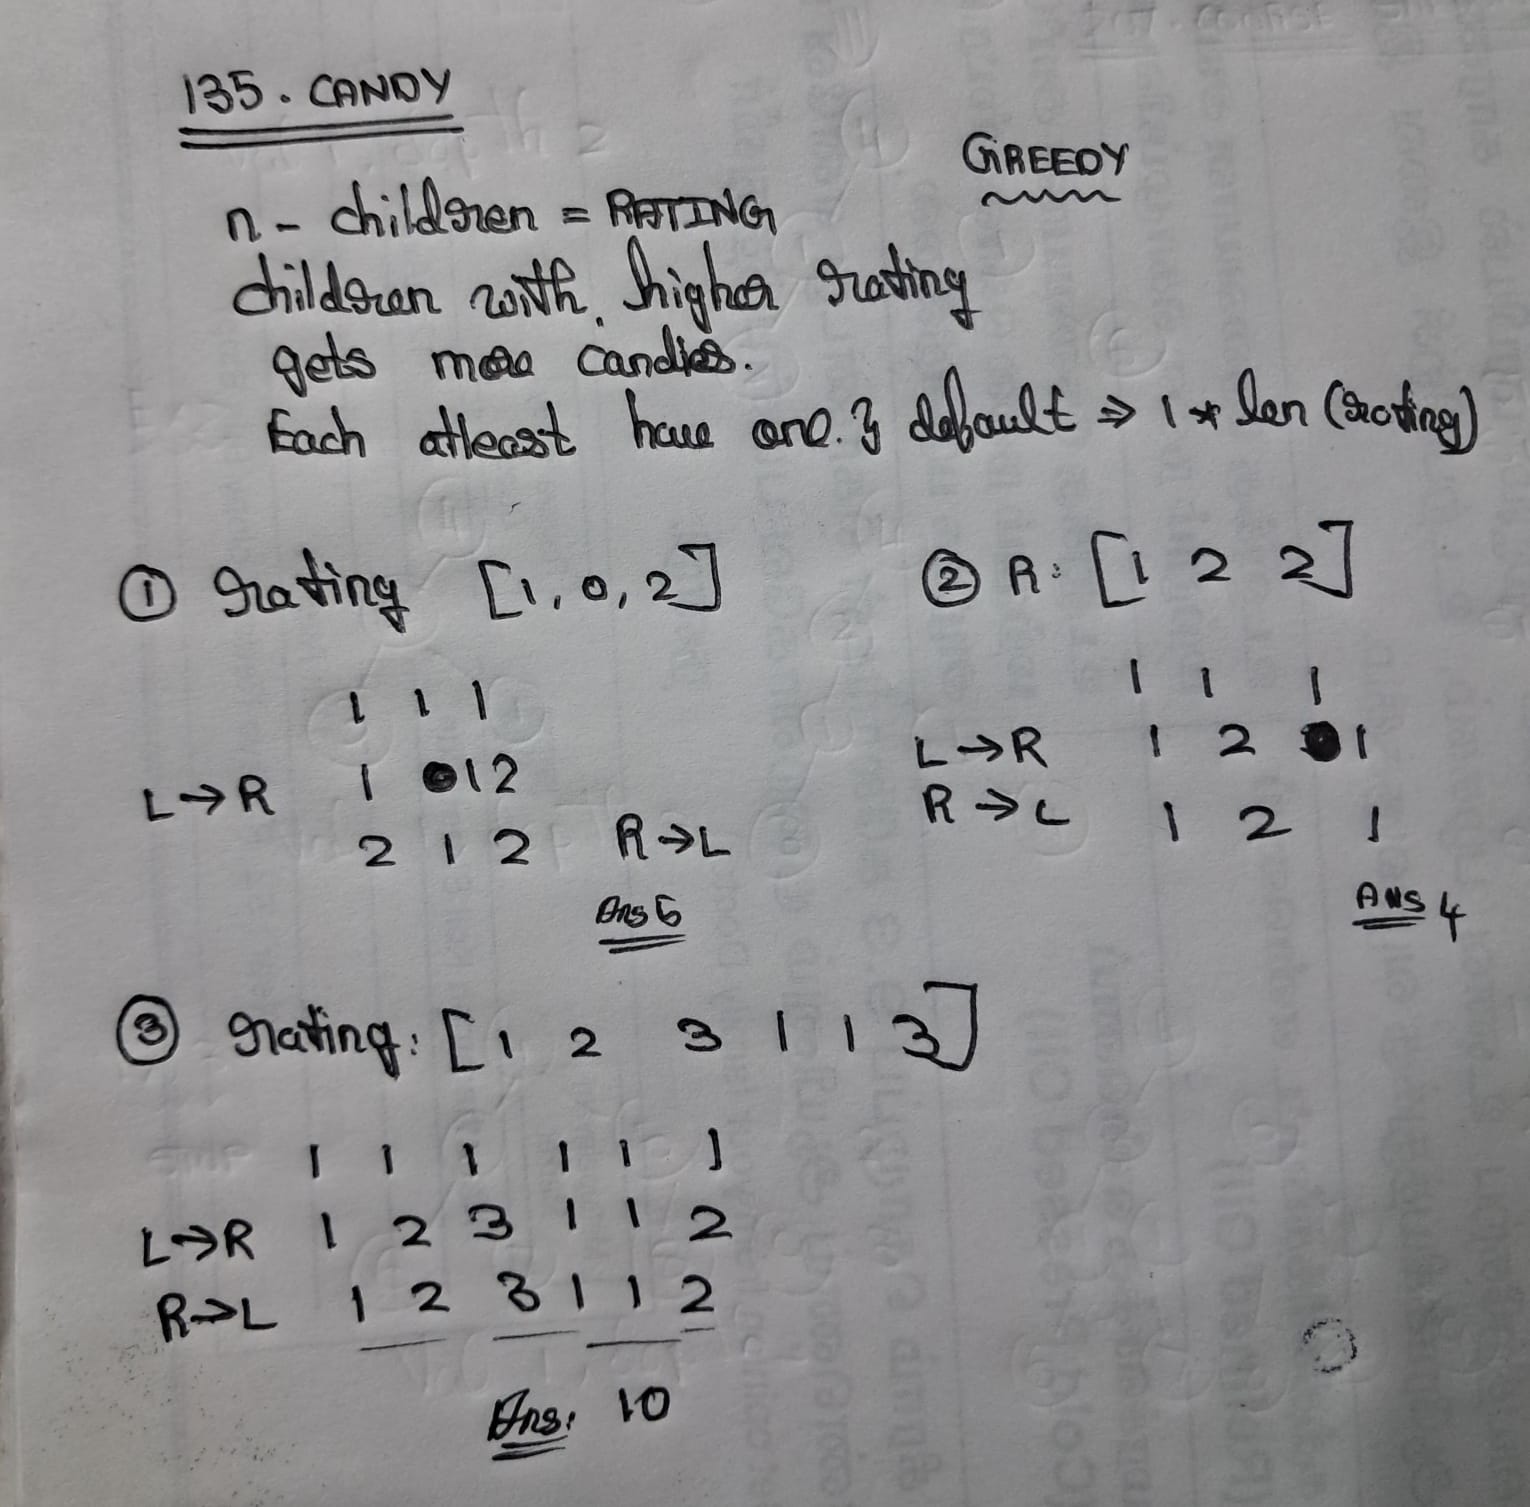 135. CANDY
GREEDY
n - children = RATING
children with higher rating
gets more candies.
Each atleast have one. } default ⇒ 1 * len (rating)
① rating [1, 0, 2]
1 1 1
L→R 1 1 2
2 1 2 R→L
Ans 5
② R: [1 2 2]
1 1 1
L→R 1 2 1
R→L 1 2 1
ANS 4
③ rating: [1 2 3 1 1 3]
1 1 1 1 1 1
L→R 1 2 3 1 1 2
R→L 1 2 3 1 1 2
Ans: 10